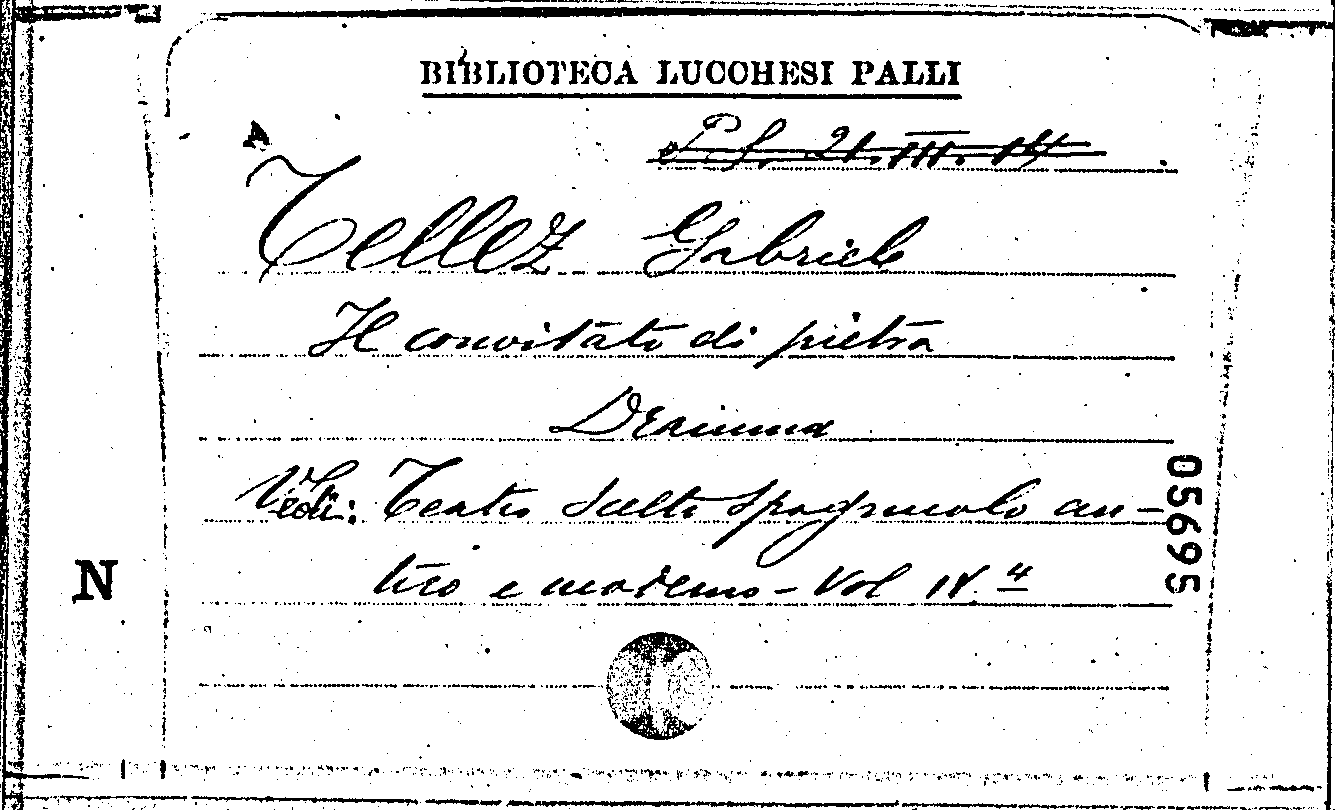 BIBLIOTECA LUCCHESI PALLI
A
P.S. 21.III.14
Tellez Gabriele
Il convitato di pietra
Dramma
Vedi: Teatro scelto spagnuolo an-
tico e moderno - Vol IV.º
05695
N